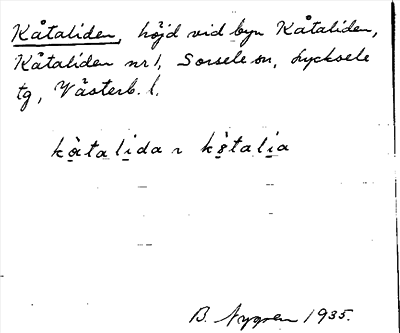 Kåtaliden, höjd vid byn Kåtaliden,
Kåtaliden nr 1, Sorsele sn, Lycksele
tg, Västerb. l.
kå̀talida ~ kö̀talia
B. Nygren 1935.